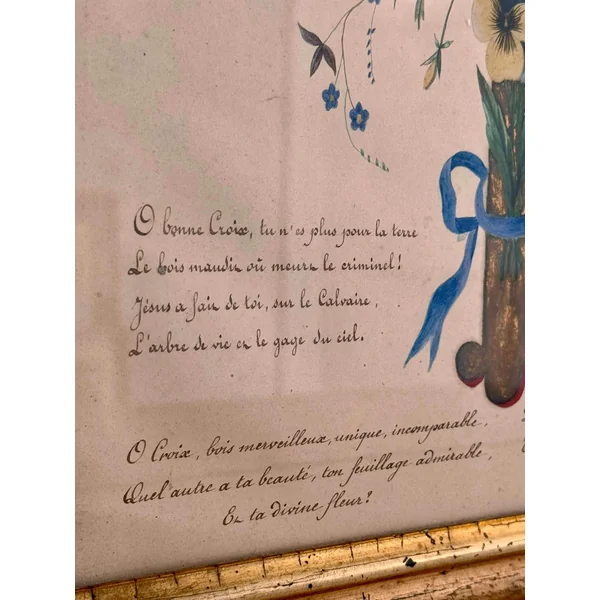 O bonne Croix, tu n'es plus pour la terre
Le bois maudit où meurt le criminel!
Jésus a fait de toi, sur le Calvaire,
L'arbre de vie et le gage du ciel.
O Croix, bois merveilleux, unique, incomparable,
Quel autre a ta beauté, ton feuillage admirable,
Et ta divine fleur?